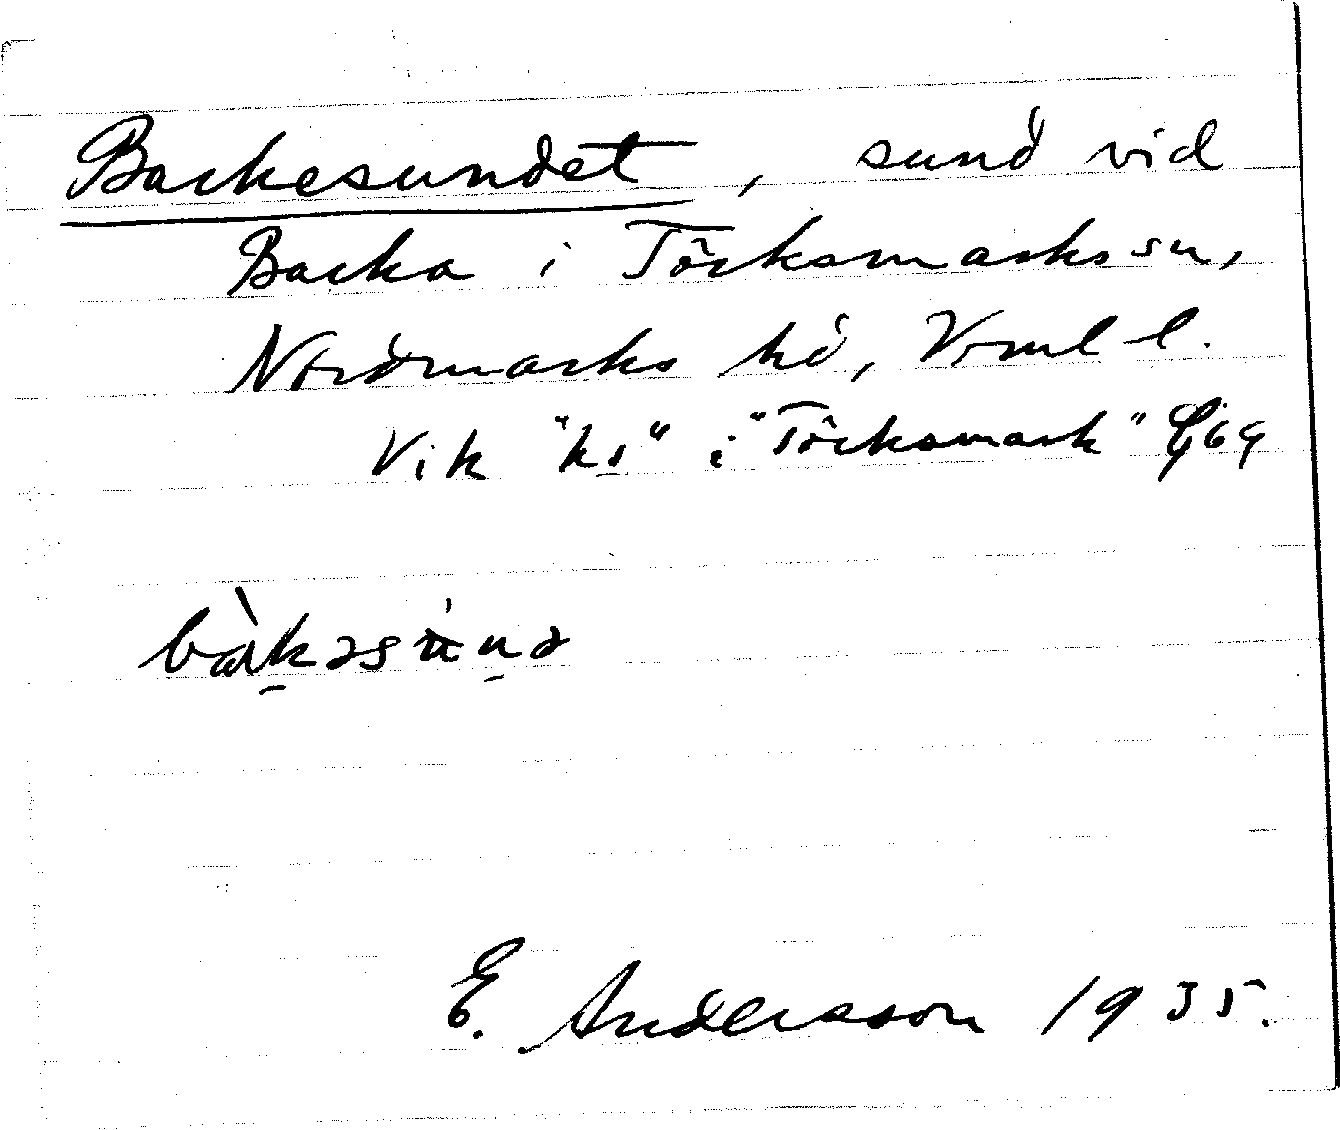 Backesundet, sund vid
Backa i Töcksmarks sn,
Nordmarks hd, Vrml l.
Vik "ks" i "Töcksmark"
E. Andersson 1935.